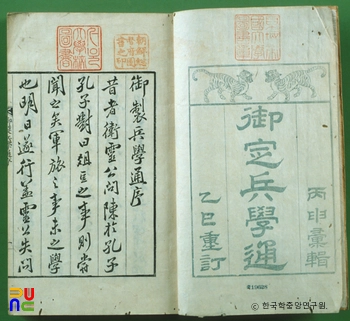 丙申彙輯
御定兵學通
乙巳重訂
御製兵學通序
昔者衛靈公問陳於孔子
孔子對曰俎豆之事則嘗
聞之矣軍旅之事未之學
也明日遂行蓋靈公失問
朝鮮總
督府圖
書之印
ⓒ한국학중앙연구원.